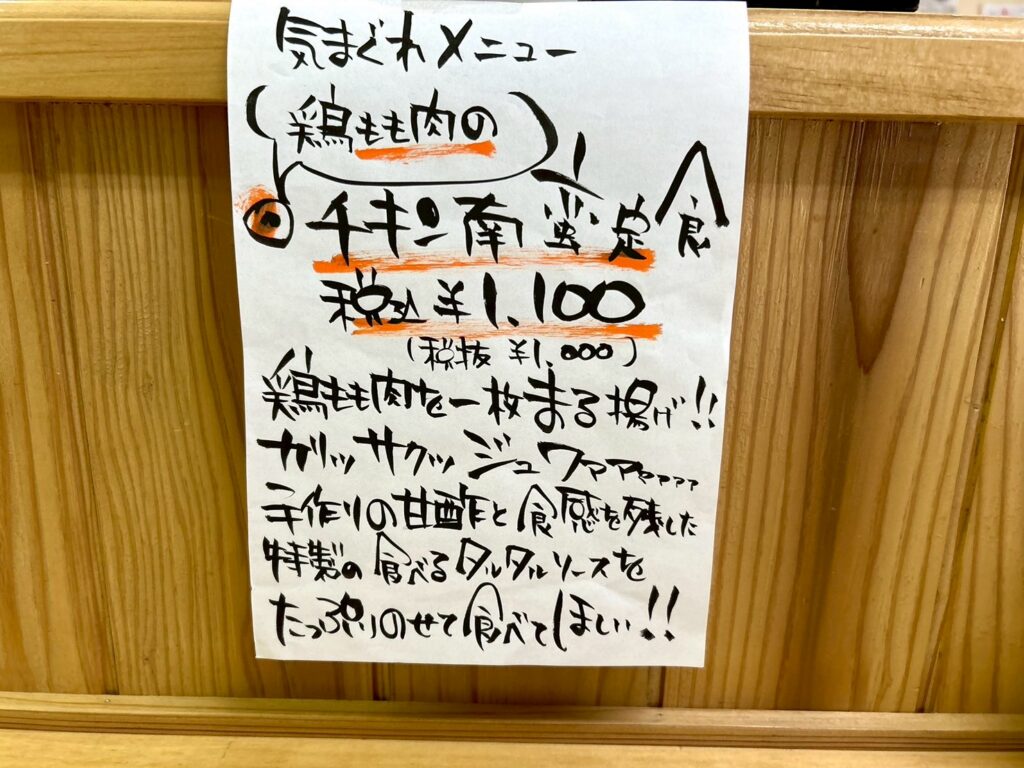 気まぐれメニュー
鶏もも肉の
チキン南蛮定食
税込¥1,100
(税抜¥1.000)
鶏もも肉を一枚まる揚げ!!
ガリッサクッジュワァァァァァァ
手作りの甘酢と食感を残した
特製の食べるタルタルソースを
たっぷりのせて食べてほしい!!